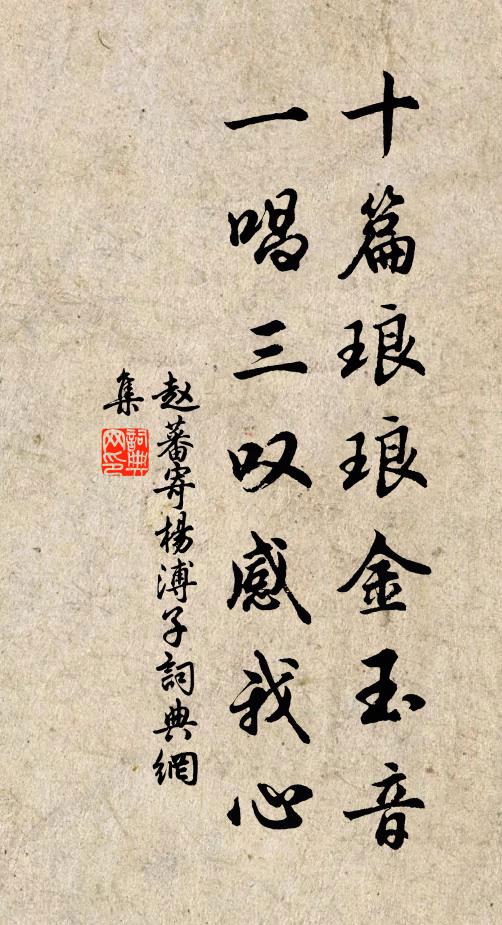 十篇琅琅金玉音
一唱三叹感我心
赵蕃寄杨溥子詞典網
集
詞典网印